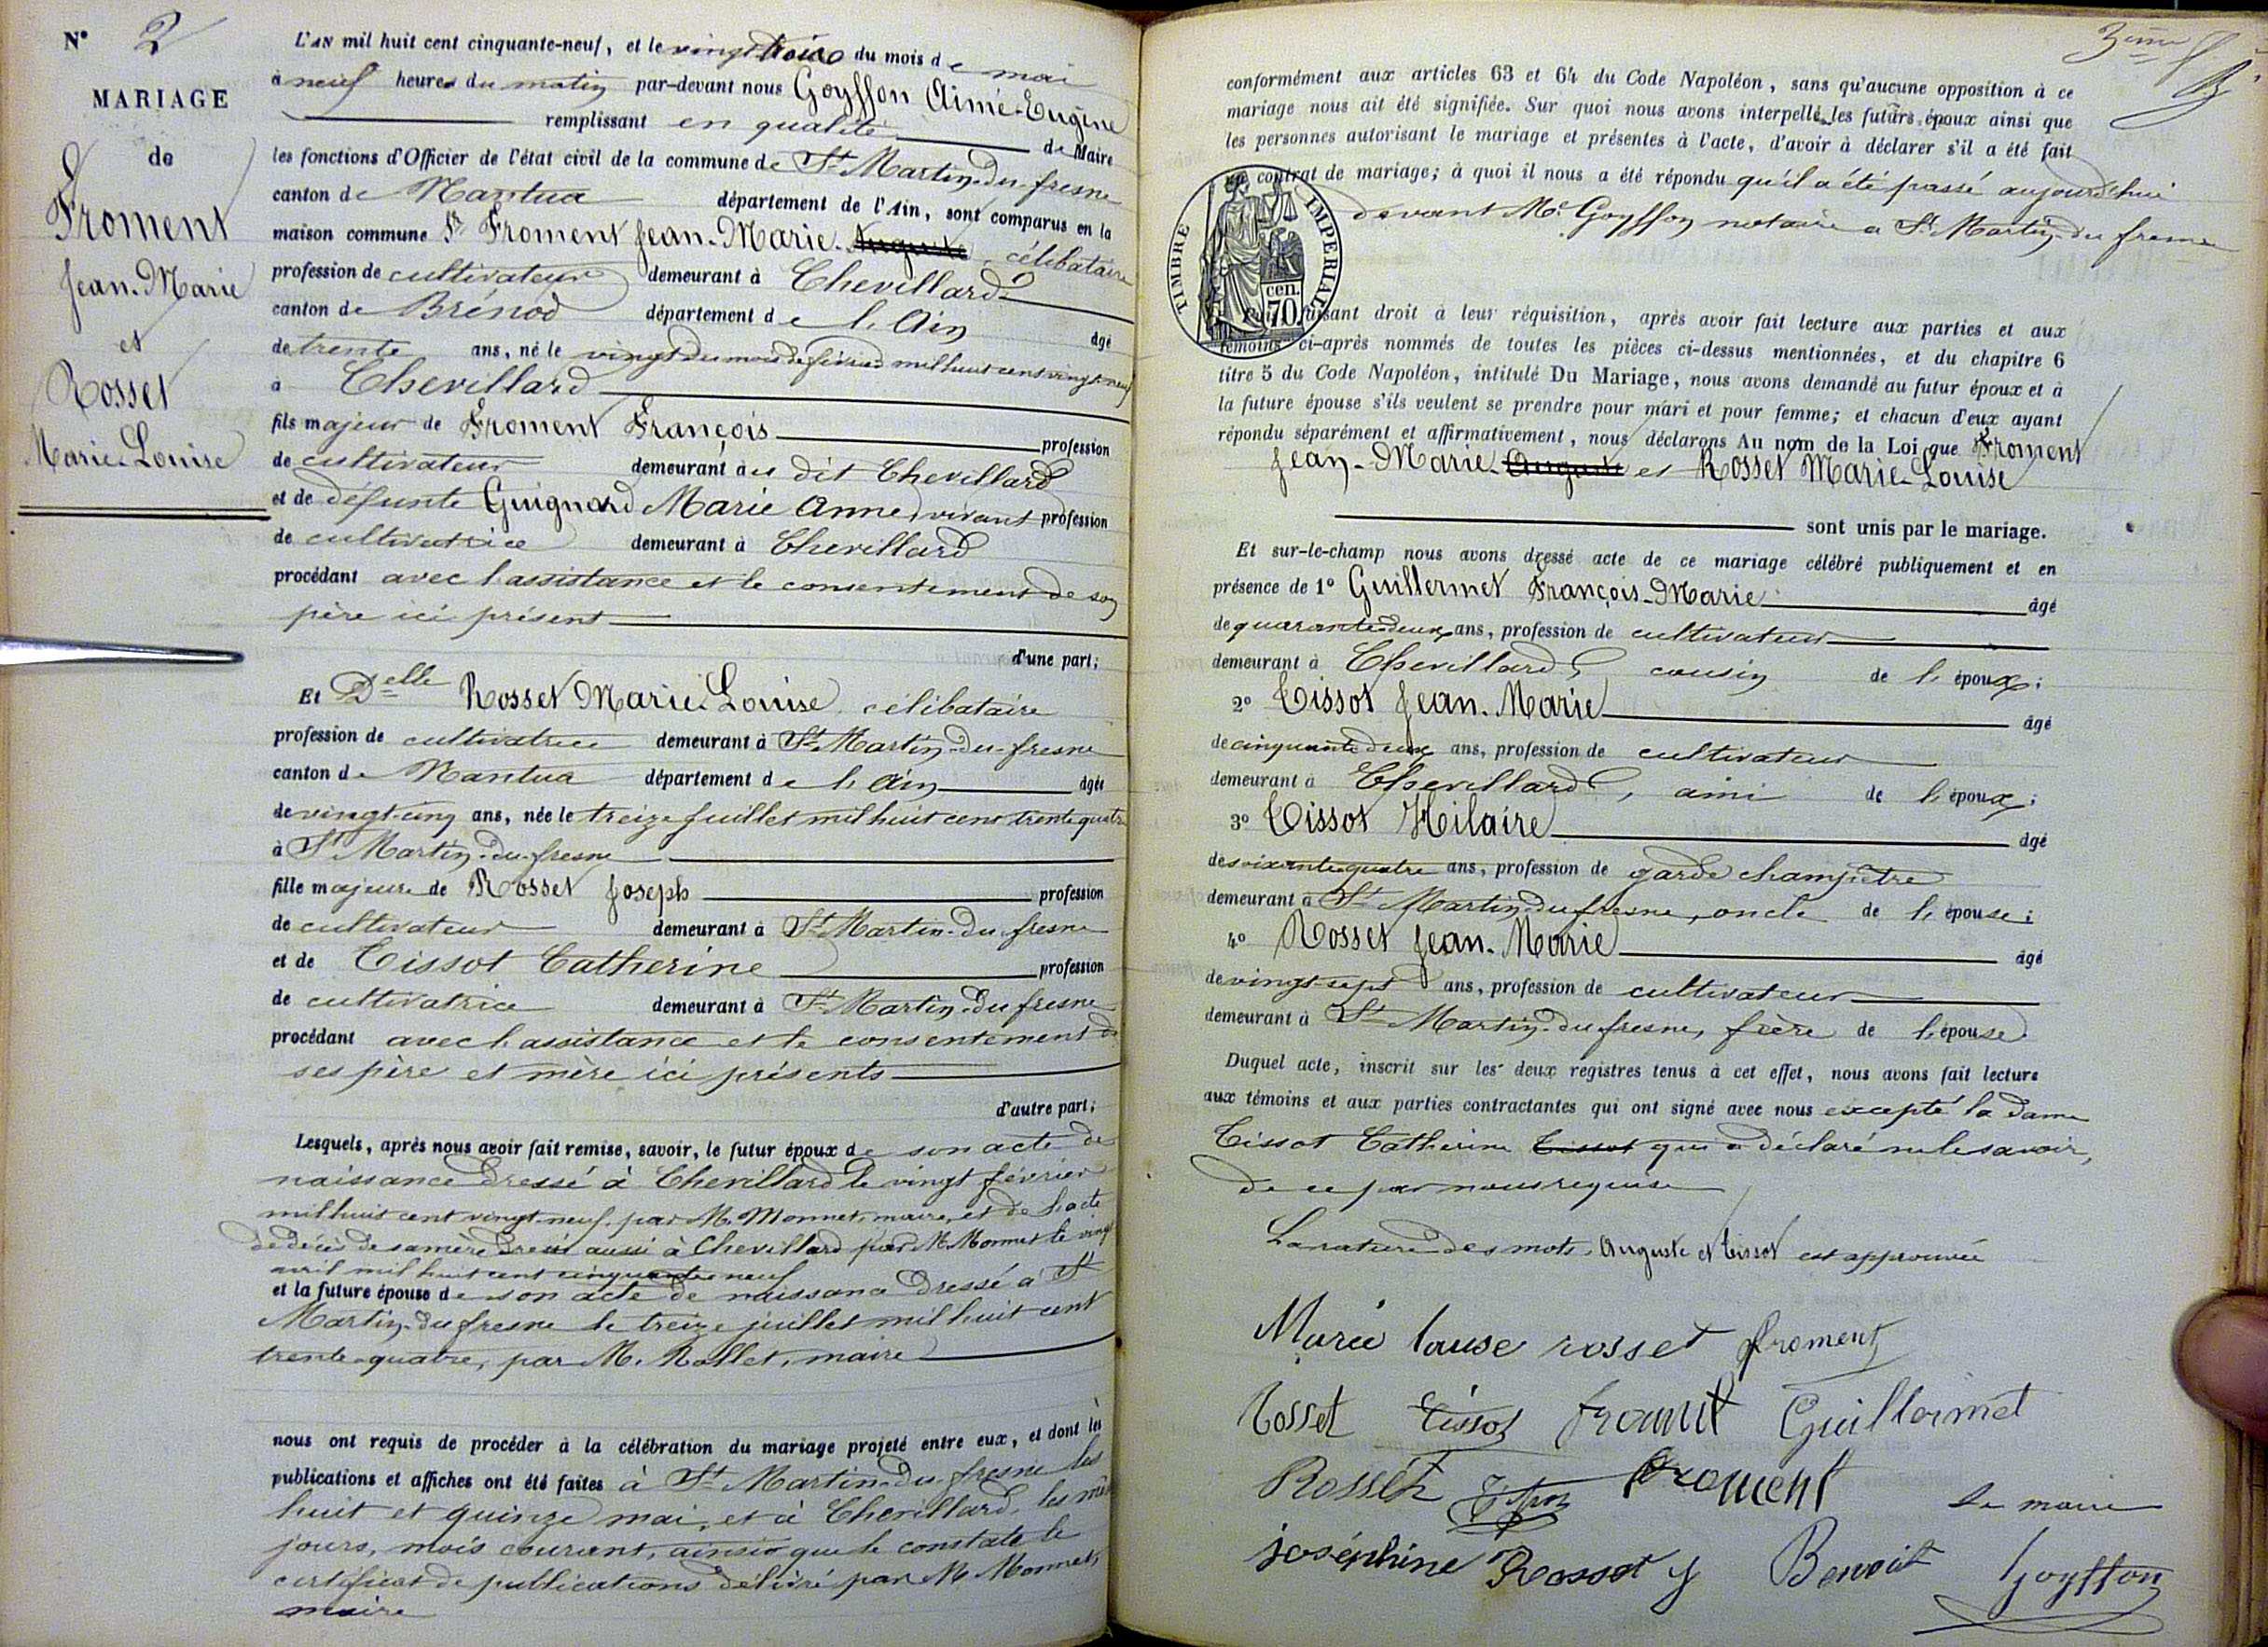 N° 2
MARIAGE
de
Froment
Jean-Marie
et
Rosset
Marie-Louise
L'AN mil huit cent cinquante-neuf, et le vingt trois du mois de mai
à neuf heures du matin par-devant nous Goyffon Aimé-Eugène
remplissant en qualité de Maire
les fonctions d'Officier de l'état civil de la commune de St Martin-du-fresne
canton de Nantua département de l'Ain, sont comparus en la
maison commune Sr Froment Jean-Marie-Auguste, célibataire
profession de cultivateur demeurant à Chevillard
canton de Brénod département de l'Ain âgé
de trente ans, né le vingt du mois de février mil huit cent vingt neuf
à Chevillard
fils majeur de Froment François profession
de cultivateur demeurant au dit Chevillard
et de défunte Guignard Marie Anne, vivant profession
de cultivatrice demeurant à Chevillard
procédant avec l'assistance et le consentement de son
père ici présent
d'une part;
Et Delle Rosset Marie-Louise, célibataire
profession de cultivatrice demeurant à St Martin-du-fresne
canton de Nantua département de l'Ain âgée
de vingt-cinq ans, née le treize juillet mil huit cent trente quatre
à St Martin-du-fresne
fille majeure de Rosset Joseph profession
de cultivateur demeurant à St Martin-du-fresne
et de Tissot Catherine profession
de cultivatrice demeurant à St Martin-du-fresne
procédant avec l'assistance et le consentement de
ses père et mère ici présents
d'autre part;
Lesquels, après nous avoir fait remise, savoir, le futur époux de son acte de
naissance dressé à Chevillard le vingt février
mil huit cent vingt-neuf, par M. Monnet, maire, et de l'acte
de décès de sa mère dressé aussi à Chevillard par M. Monnet le vingt
avril mil huit cent cinquante neuf
et la future épouse de son acte de naissance dressé à St
Martin-du-fresne le treize juillet mil huit cent
trente-quatre, par M. Rollet, maire
nous ont requis de procéder à la célébration du mariage projeté entre eux, et dont les
publications et affiches ont été faites à St Martin-du-fresne les
huit et quinze mai, et à Chevillard, les mêmes
jours, mois courant, ainsi que le constate le
certificat de publications délivré par M. Monnet,
maire
3ème
conformément aux articles 63 et 64 du Code Napoléon, sans qu'aucune opposition à ce
mariage nous ait été signifiée. Sur quoi nous avons interpellé les futurs époux ainsi que
les personnes autorisant le mariage et présentes à l'acte, d'avoir à déclarer s'il a été fait
un contrat de mariage; à quoi il nous a été répondu qu'il a été passé aujourd'hui
devant Me Goyffon notaire à St Martin-du-fresne
TIMBRE IMPÉRIAL
70 cen.
faisant droit à leur réquisition, après avoir fait lecture aux parties et aux
témoins ci-après nommés de toutes les pièces ci-dessus mentionnées, et du chapitre 6
titre 5 du Code Napoléon, intitulé Du Mariage, nous avons demandé au futur époux et à
la future épouse s'ils veulent se prendre pour mari et pour femme; et chacun d'eux ayant
répondu séparément et affirmativement, nous déclarons Au nom de la Loi que Froment
Jean-Marie-Auguste et Rosset Marie-Louise
sont unis par le mariage.
Et sur-le-champ nous avons dressé acte de ce mariage célébré publiquement et en
présence de 1° Guillermet François-Marie âgé
de quarante-deux ans, profession de cultivateur
demeurant à Chevillard, cousin de l'époux;
2° Tissot Jean-Marie âgé
de cinquante deux ans, profession de cultivateur
demeurant à Chevillard, ami de l'époux;
3° Tissot Hilaire âgé
de soixante-quatre ans, profession de garde champêtre
demeurant à St Martin-du-fresne, oncle de l'épouse;
4° Rosset Jean-Marie âgé
de vingt-sept ans, profession de cultivateur
demeurant à St Martin-du-fresne, frère de l'épouse
Duquel acte, inscrit sur les deux registres tenus à cet effet, nous avons fait lecture
aux témoins et aux parties contractantes qui ont signé avec nous excepté la dame
Tissot Catherine Tissot qui a déclaré ne le savoir,
de ce par nous requise
La rature des mots, Auguste et Tissot est approuvée
Marie louse rosset froment
Rosset Tissot froment Guillermet
Rosset froment Le maire
joséphine Rosset Benoit Goyffon